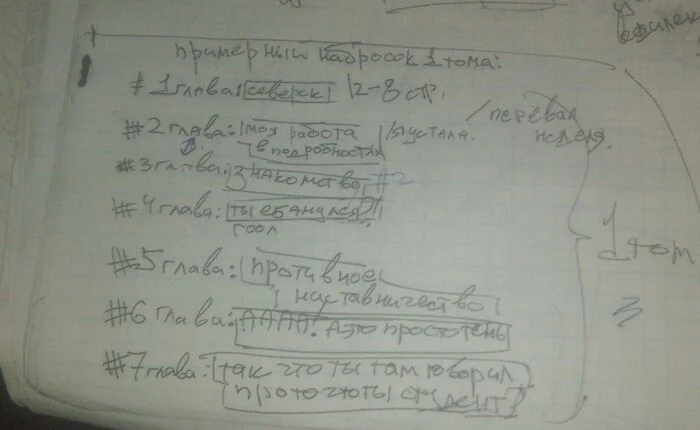 примерный набросок 1 тома:
# 1 глава: северск 12-8 стр.
#2 глава: моя работа в подробностях /я устала. /первая неделя.
#3 глава: знакомство #2
#4 глава: ты ебанулся?!
гоол
#5 глава: противное
наставничество
#6 глава: АААА! А это просто тень
#7 глава: так что ты там говорил
про то что ты студент?
1 том